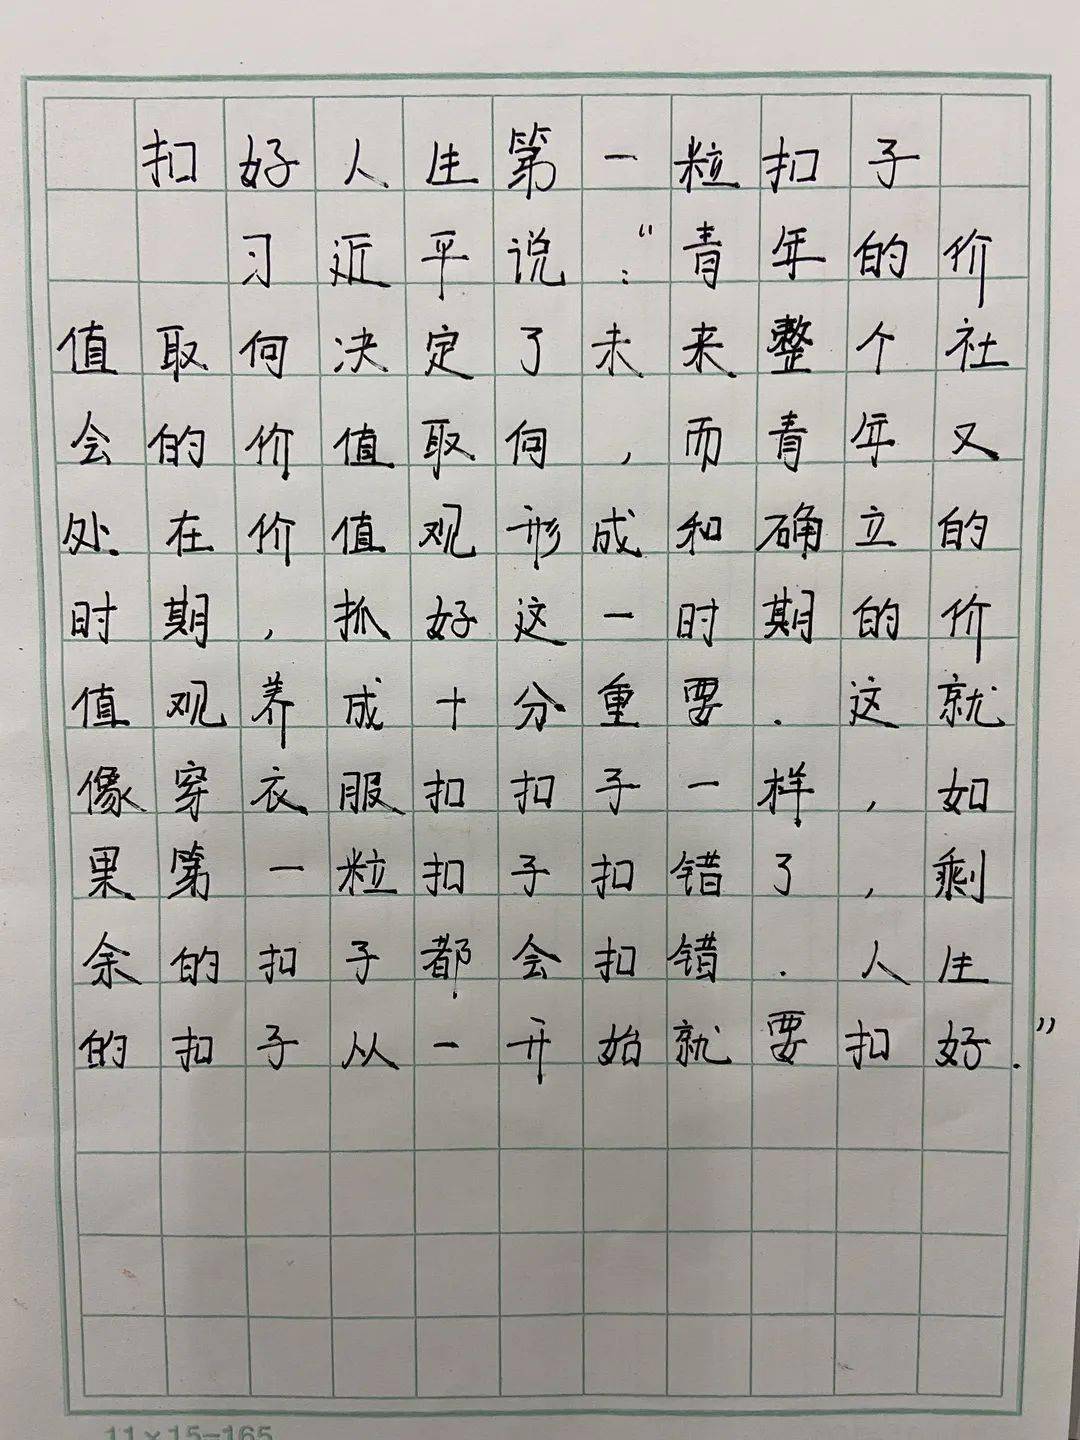 扣好人生第一粒扣子
习近平说:“青年的价
值取向决定了未来整个社
会的价值取向,而青年又
处在价值观形成和确立的
时期,抓好这一时期的价
值观养成十分重要.这就
像穿衣服扣扣子一样,如
果第一粒扣子扣错了,剩
余的扣子都会扣错.人生
的扣子从一开始就要扣好.”
11×15=165